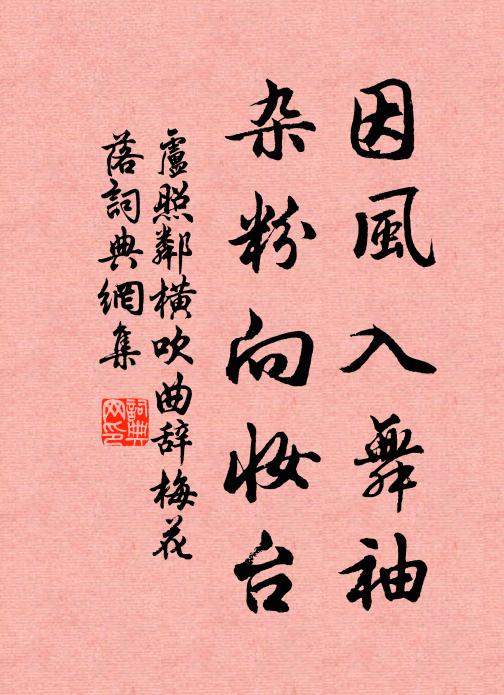 因風入舞袖
杂粉向妆台
盧照鄰横吹曲辞梅花
落詞典網集
詞典
网印